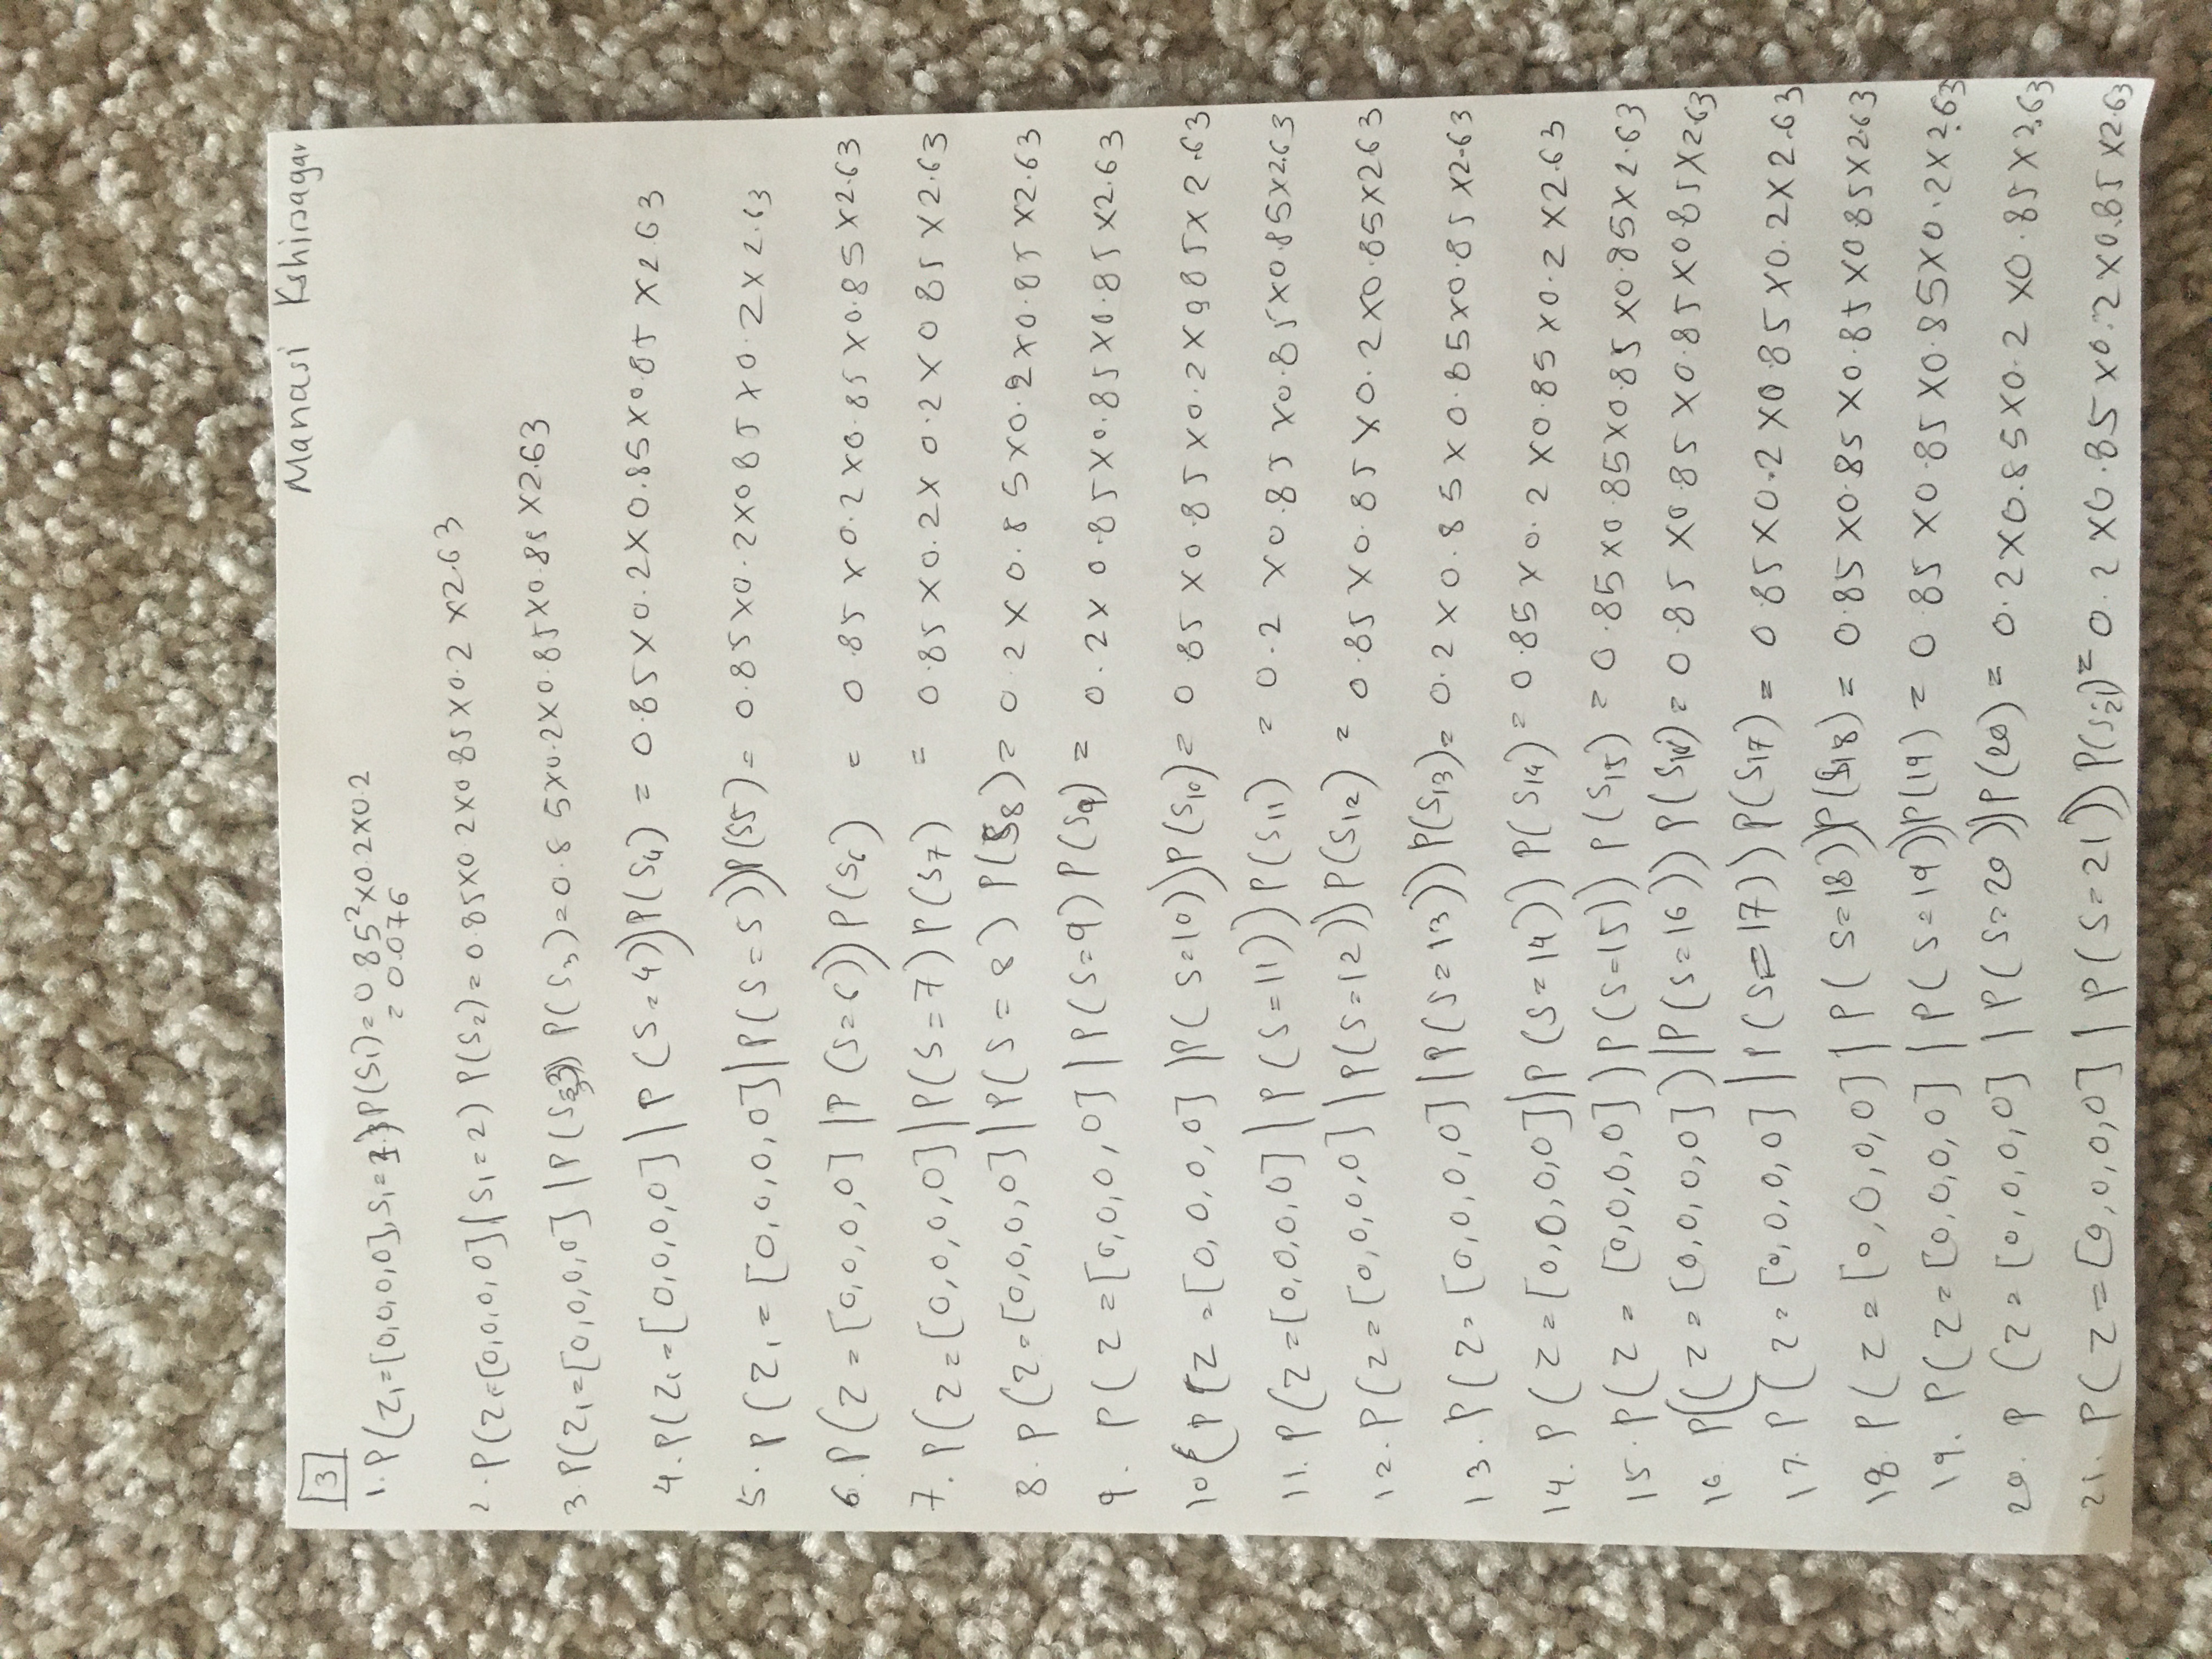 Manasi Kshirsagar
3
1. P(Z₁=[0,0,0,0], S₁=1) P(S₁) = 0.85² × 0.2 × 0.2
= 0.076
2. P(Z₁=[0,0,0,0] | S₁=2) P(S₂) = 0.85 × 0.2 × 0.85 × 0.2 × 2.63
3. P(Z₁=[0,0,0,0] | P(S=3)) P(S₃) = 0.85 × 0.2 × 0.85 × 0.85 × 2.63
4. P(Z₁=[0,0,0,0] | P(S=4)) P(S₄) = 0.85 × 0.2 × 0.85 × 0.85 × 2.63
5. P(Z₁=[0,0,0,0] | P(S=5)) P(S5) = 0.85 × 0.2 × 0.85 × 0.2 × 2.63
6. P(Z=[0,0,0,0] | P(S=6)) P(S₆) = 0.85 × 0.2 × 0.85 × 0.85 × 2.63
7. P(Z=[0,0,0,0] | P(S=7) P(S7) = 0.85 × 0.2 × 0.2 × 0.85 × 2.63
8. P(Z=[0,0,0,0] | P(S=8) P(S8) = 0.2 × 0.85 × 0.2 × 0.85 × 2.63
9. P(Z=[0,0,0,0] | P(S=9) P(S9) = 0.2 × 0.85 × 0.85 × 0.85 × 2.63
10 P(Z=[0,0,0,0] | P(S=10)) P(S₁₀) = 0.85 × 0.85 × 0.2 × 0.85 × 2.63
11. P(Z=[0,0,0,0] | P(S=11)) P(S₁₁) = 0.2 × 0.85 × 0.85 × 0.85 × 2.63
12. P(Z=[0,0,0,0] | P(S=12)) P(S₁₂) = 0.85 × 0.85 × 0.2 × 0.85 × 2.63
13. P(Z=[0,0,0,0] | P(S=13)) P(S₁₃) = 0.2 × 0.85 × 0.85 × 0.85 × 2.63
14. P(Z=[0,0,0,0] | P(S=14)) P(S₁₄) = 0.85 × 0.2 × 0.85 × 0.2 × 2.63
15. P(Z=[0,0,0,0]) P(S=15)) P(S₁₅) = 0.85 × 0.85 × 0.85 × 0.85 × 2.63
16. P((Z=[0,0,0,0]) | P(S=16)) P(S₁₆) = 0.85 × 0.85 × 0.85 × 0.85 × 2.63
17. P(Z=[0,0,0,0] | P(S=17)) P(S₁₇) = 0.85 × 0.2 × 0.85 × 0.2 × 2.63
18. P(Z=[0,0,0,0] | P(S=18)) P(S₁₈) = 0.85 × 0.85 × 0.85 × 0.85 × 2.63
19. P(Z=[0,0,0,0] | P(S=19)) P(19) = 0.85 × 0.85 × 0.85 × 0.2 × 2.63
20. P(Z=[0,0,0,0] | P(S=20)) P(20) = 0.2 × 0.85 × 0.2 × 0.85 × 2.63
21. P(Z=[0,0,0,0] | P(S=21)) P(S₂₁) = 0.2 × 0.85 × 0.2 × 0.85 × 2.63